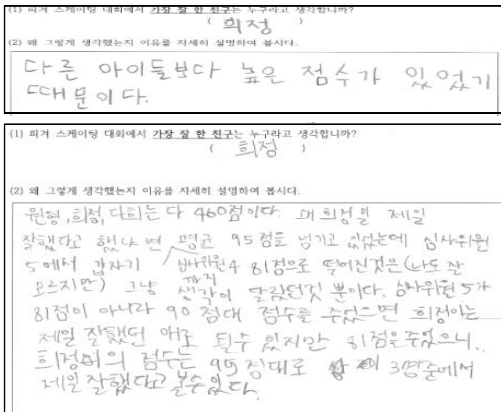 (1) 피겨 스케이팅 대회에서 가장 잘 한 친구는 누구라고 생각합니까?
( 희정 )
(2) 왜 그렇게 생각했는지 이유를 자세히 설명하여 봅시다.
다른 아이들보다 높은 점수가 있었기
때문이다.
(1) 피겨 스케이팅 대회에서 가장 잘 한 친구는 누구라고 생각합니까?
( 희정 )
(2) 왜 그렇게 생각했는지 이유를 자세히 설명하여 봅시다.
원형, 희정, 다희는 다 460점이다. 왜 희정을 제일
잘했다고 했냐면 평균 95점을 넘기고 있었는데 심사위원
5에서 갑자기 심사위원4까지 81점으로 떨어진것은 (나도 잘
모르지만) 그냥 생각이 달랐던것 뿐이다. 심사위원 5가
81점이 아니라 90점대 점수를 주었으면 희정이는
제일 잘했던 애로 될수 있지만 81점을주었으니.
희정이의 점수는 95점대로 3명중에서
제일 잘했다고 볼수있다.